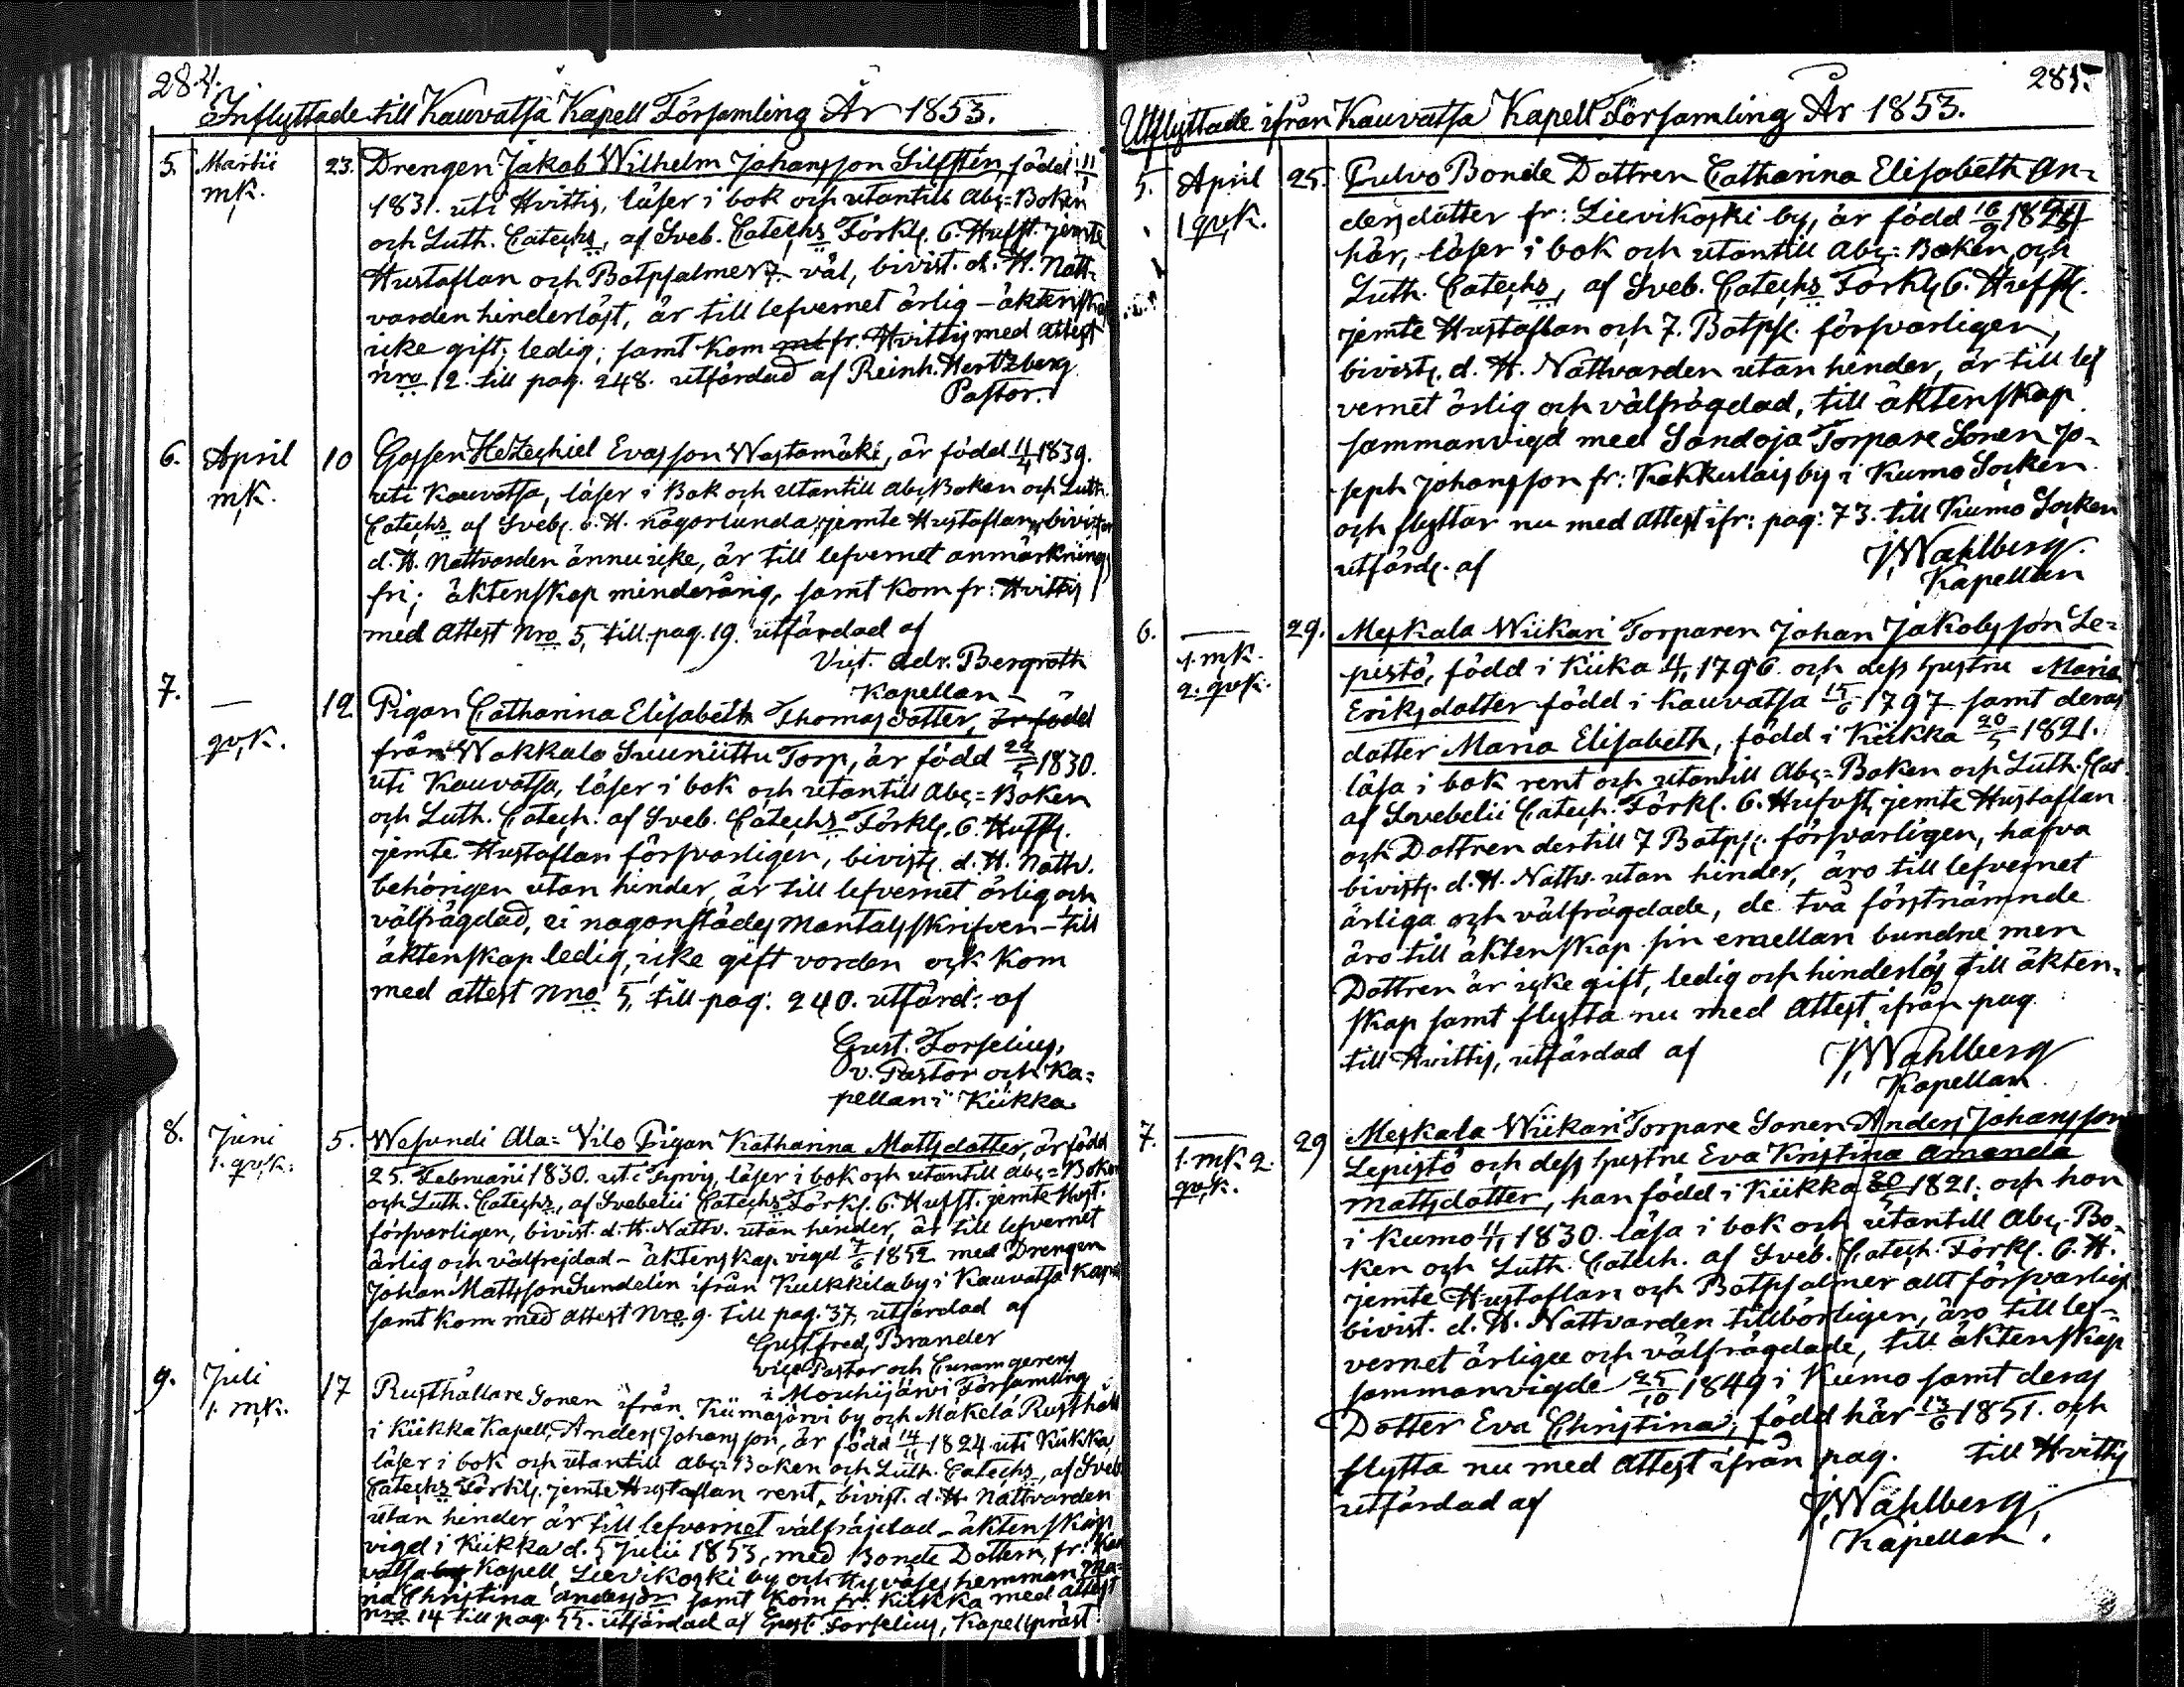 284.
Inflyttade till Kauvatsa Kapell Församling År 1853.
5. Martii 23. Drengen Jakob Wilhelm Johansson Silfstén, född 11/1
mk. 1831. uti Hvittis, läser i bok och utantill Abc=Boken
och Luth. Catechs, af Sveb. Catechs Förkls. 6. Hufst. jemte
Hustaflan och Botpsalmer 7. väl, bivist. d. H. Natt-
varden hinderlöst, är till lefvernet ärlig - äktenskap
icke gift; ledig; samt kom fr. Hvittis med attest
nro 12. till pag. 248. utfärdad af Reinh. Hertzberg
Pastor.
6. April 10 Gossen Hezechiel Evasson Wastamäki, är född 11/4 1839.
mk. uti Kauvatsa, läser i Bok och utantill Abc Boken och Luth.
Catechs af Sveb. 6. H. någorlunda, jemte Hustaflan, bivistar
d. H. Nattvarden ännu icke, är till lefvernet anmärknings
fri; äktenskap minderårig, samt kom fr: Hvittis
med attest Nro 5, till pag. 19. utfärdad af
Vict. Adr. Bergroth
Kapellan
7. — 12 Pigan Catharina Elisabeth Thomasdotter, är född
qv,k. från Wakkala Suuniittu Torp, är född 22/5 1830.
uti Kauvatsa, läser i bok och utantill Abc=Boken
och Luth. Catech. af Sveb. Catechs Förkls. 6. Hufst.
jemte Hustaflan försvarligen, bivist. d. H. Nattv.
behörigen utan hinder, är till lefvernet ärlig och
välfrägdad, ei nagonstädes Mantalsskrifven - till
äktenskap ledig, icke gift vorden och kom
med attest Nro 5, till pag. 240. utfärd. af
Gust. Forselius,
v. Pastor och Ka=
pellan i Kiikka
8. Juni 5. Wesundi Ala=Vilo Pigan Katharina Mattsdotter, är född
1. qv,k. 25. Februarii 1830. uti Tyrvis, läser i bok och utantill Abc=Boken
och Luth. Catechs, af Svebelii Catechs Förkl. 6. Hufst. jemte Hust.
försvarligen, bivist. d. H. Nattv. utan hinder, är till lefvernet
ärlig och välfrejdad - äktenskap. vigd 7/6 1852 med Drengen
Johan Mattsson Sundelin ifrån Kulkkila by i Kauvatsa Kapell
samt kom med attest Nro 9. till pag. 37, utfärdad af
Gust fred, Brander
vice Pastor och Curam gerens
i Mouhijärvi Församling
9. Juli 17 Rusthållare Sonen ifrån Kiimajärvi by och Mäkelä Rusthåll
1. mk. i Kiikka Kapell, Anders Johansson, är född 14/11 1824 uti Kiikka
läser i bok och utantill Abc=Boken och Luth. Catechs, af Sveb.
Catechs Förkls. jemte Hustaflan rent, bivist. d. H. Nattvarden
utan hinder, är till lefvernet välfräjdad - äktenskap
vigd i Kiikka d. 5 Julii 1853, med Bonde Dottern, fr: Kau
vatsa by Kapell Lievikoski by och hemman Ma=
ria Christina andersdr samt kom fr. Kiikka med attest
nro 14 till pag. 55. utfärdad af Gust. Forselius, Kapellpräst.
285.
Utflyttade ifrån Kauvatsa Kapell Församling År 1853.
5. April 25. Pulvo Bonde Dottren Catharina Elisabeth An=
1 qv,k. dersdotter fr: Lievikoski by, är född 16/9
här, läser i bok och utantill Abc=Boken och
Luth. Catechs, af Sveb. Catechs Förkls 6. Hufst.
jemte Hustaflan och 7. Botps. försvarligen,
bivist. d. H. Nattvarden utan hinder, är till lef
vernet ärlig och välfrägdad, till äktenskap
sammanvigd med Sandoja Torpare Sonen Jo=
seph Johansson fr: Kakkulais by i Kumo Socken
och flyttar nu med attest ifr: pag: 73. till Kumo Socken
utfärd. af J,Wahlberg.
Kapellan
6. — 29. Meskala Wiikari Torparen Johan Jakobsson Le=
1. mk. pistö, född i Kiika 4/1 1796. och dess hustru Maria
2. qvk. Eriksdotter född i Kauvatsa 15/6 1797 samt deras
dotter Maria Elisabeth, född i Kiikka 20/5 1821.
läsa i bok rent och utantill Abc=Boken och Luth. Cat.
af Svebelii Catech. Förkl. 6. Hufvst. jemte Hustaflan
och Dottren dertill 7 Botps. försvarligen, hafva
bivist. d. H. Nattv. utan hinder, äro till lefvernet
ärliga och välfrägdade, de två förstnämnde
äro till äktenskap sin emellan bundne men
Dottren är icke gift, ledig och hinderlös till äkten=
skap samt flytta nu med attest ifrån pag.
till Hvittis, utfärdad af J,Wahlberg
Kapellan
7. — 29 Meskala Wiikari Torpare Sonen Anders Johansson
1. mk 2. Lepistö och dess hustru Eva Kristina Amanda
qv,k. Mattsdotter, han född i Kiikka 20/5 1821. och hon
i Kumo 11/1 1830. läsa i bok och utantill Abc-Bo=
ken och Luth. Catech. af Sveb. Catech. Förkl. 6. H.
jemte Hustaflan och Botpsalmer allt försvarlig
bivist. d. H. Nattvarden tillbörligen, äro till lef=
vernet ärliga och välfrägdade, till äktenskap
sammanvigde 25/10 1849 i Kumo samt deras
Dotter Eva Christina, född här 13/6 1851. och
flytta nu med attest ifrån pag. till Hvittis
utfärdad af J,Wahlberg,
Kapellan.